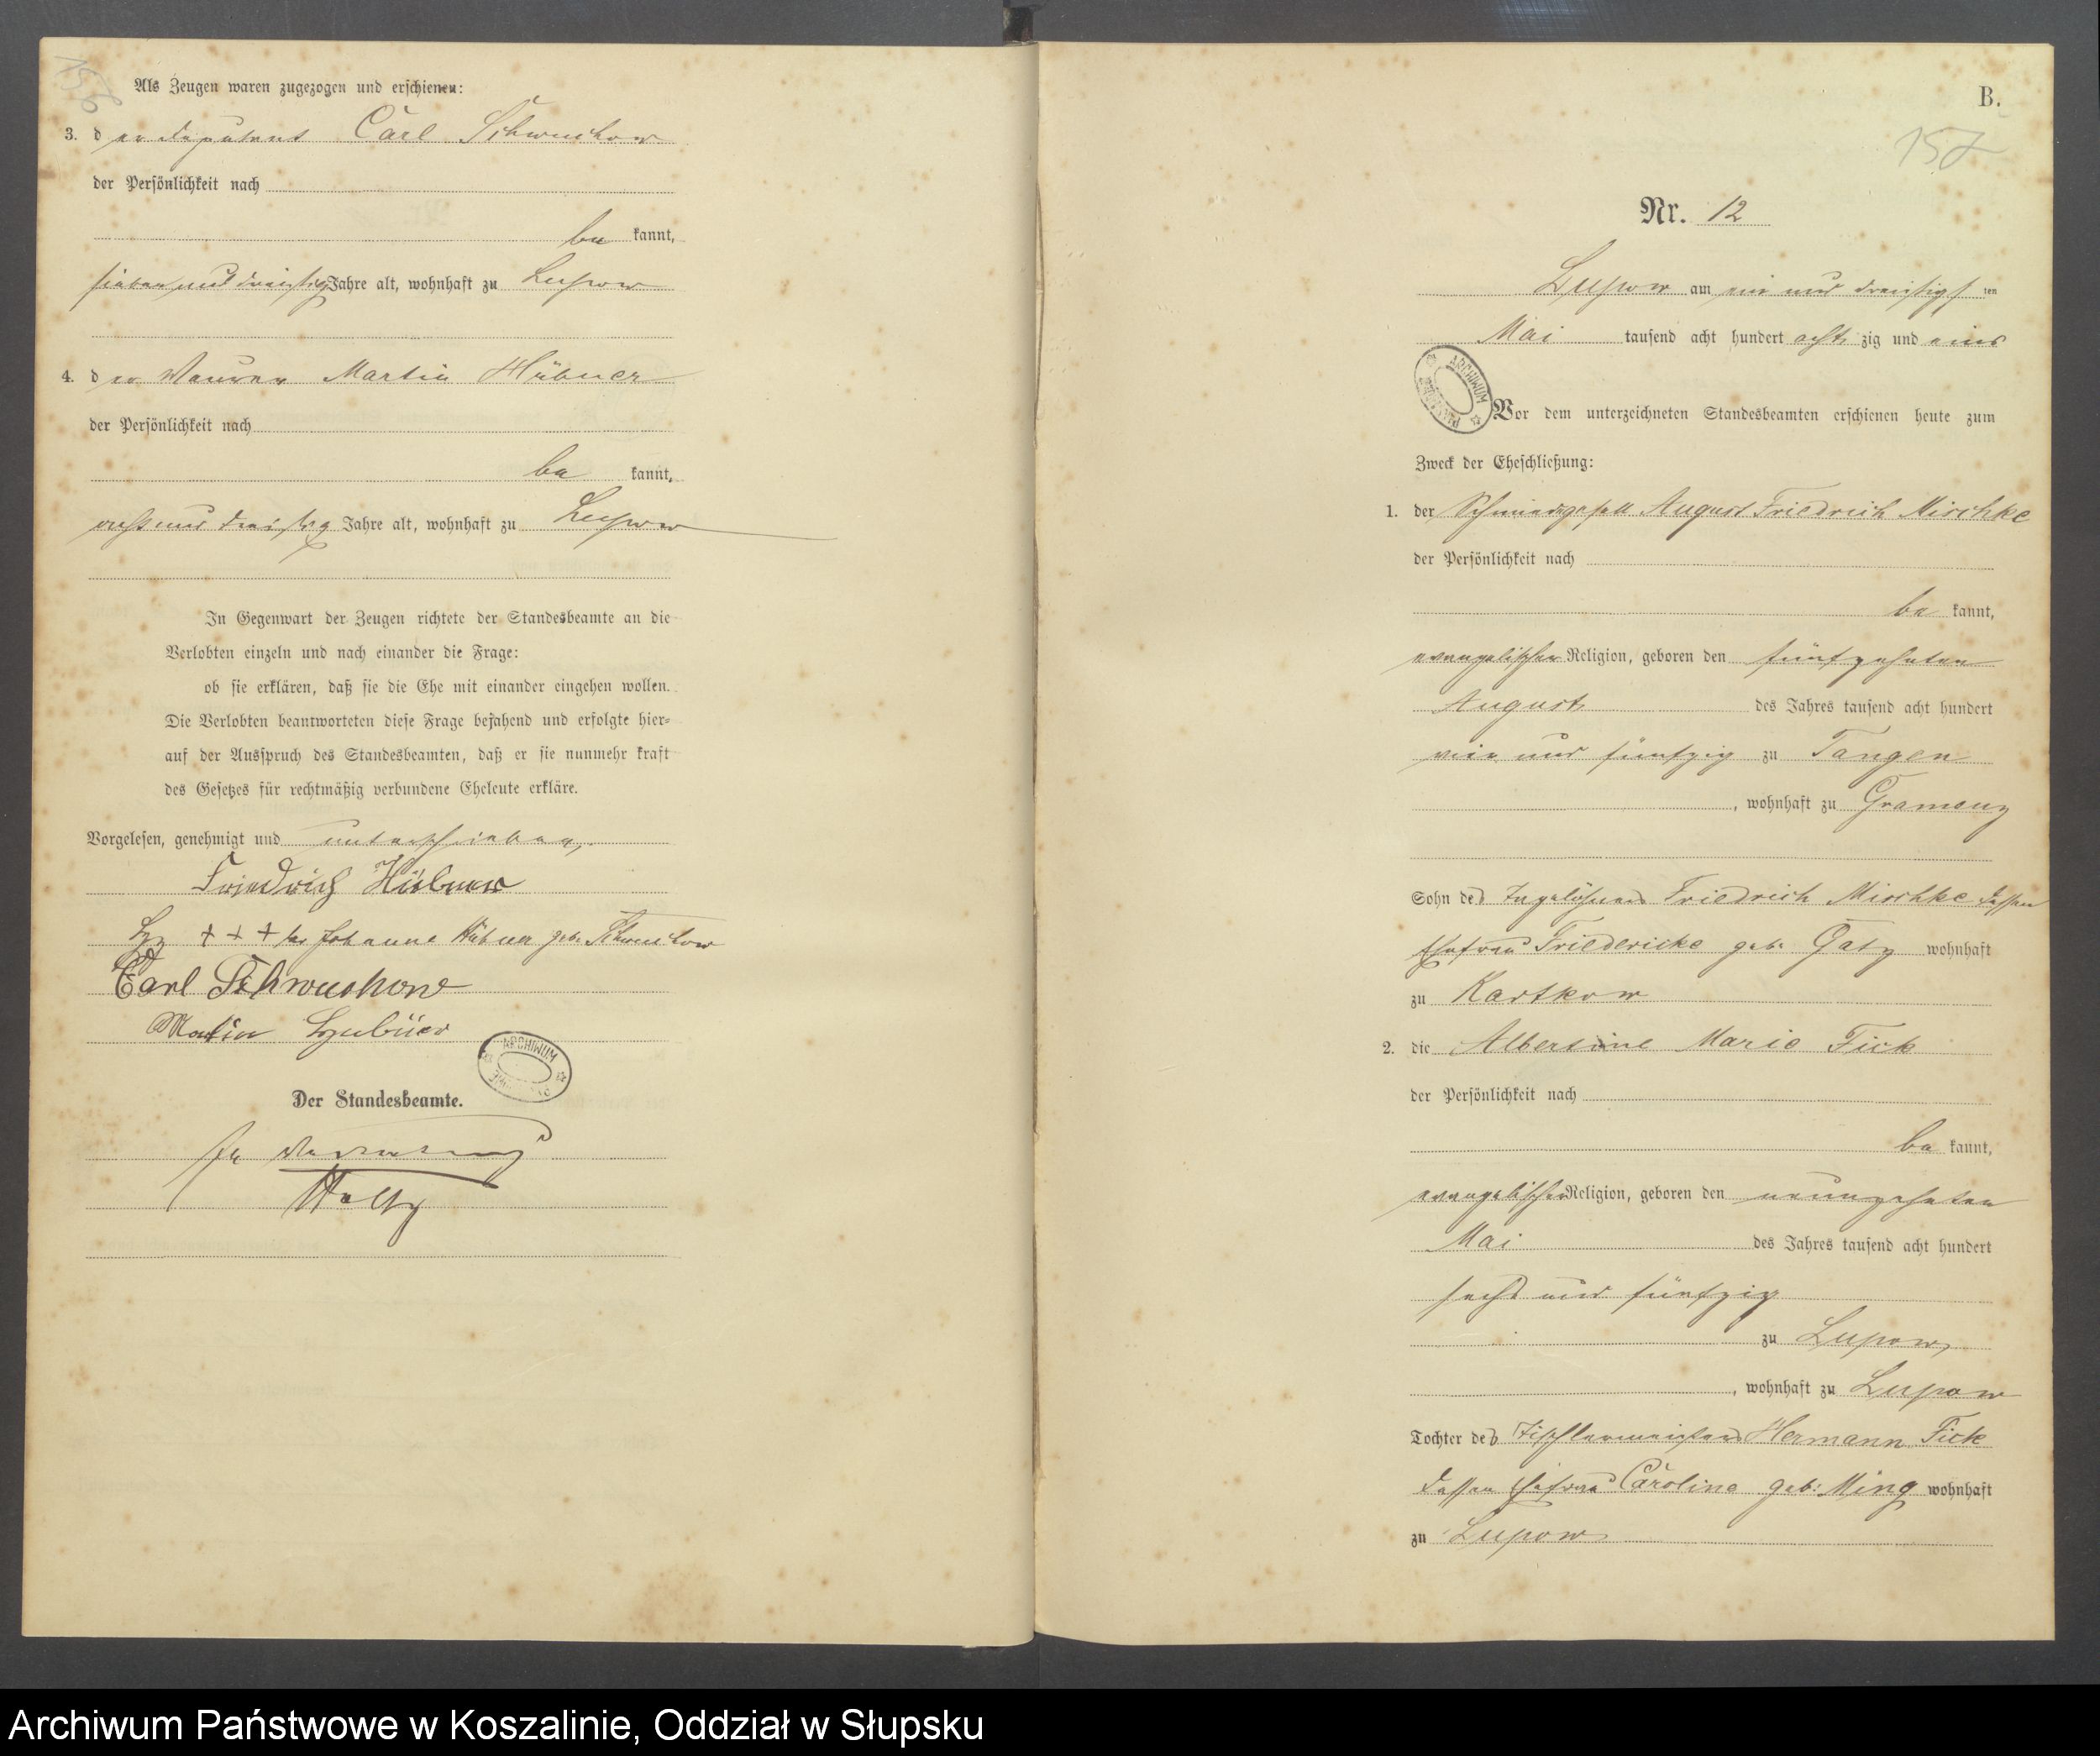 156
Als Zeugen waren zugezogen und erschienen:
3. der Deputant Carl Schwuchow
der Persönlichkeit nach
be kannt,
sieben und dreißig Jahre alt, wohnhaft zu Lupow
4. der Maurer Martin Hübner
der Persönlichkeit nach
be kannt,
acht und dreißig Jahre alt, wohnhaft zu Lupow
In Gegenwart der Zeugen richtete der Standesbeamte an die
Verlobten einzeln und nach einander die Frage:
ob sie erklären, daß sie die Ehe mit einander eingehen wollen.
Die Verlobten beantworteten diese Frage bejahend und erfolgte hier-
auf der Ausspruch des Standesbeamten, daß er sie nunmehr kraft
des Gesetzes für rechtmäßig verbundene Eheleute erkläre.
Vorgelesen, genehmigt und unterschrieben,
Friedrich Hübner
Hz + + + der Johanna Hübner geb. Schwuchow
Carl Schwuchow
Martin Hübner
ARCHIWUM
Der Standesbeamte.
In Vertretung
B.
157
Nr. 12
Lupow am ein und dreißigsten
Mai tausend acht hundert achtzig und eins
ARCHIWUM
Vor dem unterzeichneten Standesbeamten erschienen heute zum
Zweck der Eheschließung:
1. der Schmiedgesell August Friedrich Mischke
der Persönlichkeit nach
be kannt,
evangelischer Religion, geboren den fünfzehnten
August des Jahres tausend acht hundert
vier und fünfzig zu Tangen
, wohnhaft zu Gramenz
Sohn des Tagelöhners Friedrich Mischke dessen
Ehefrau Friedericke geb. Gatz wohnhaft
zu Kartkow
2. die Albertine Marie Fick
der Persönlichkeit nach
be kannt,
evangelischer Religion, geboren den neunzehnten
Mai des Jahres tausend acht hundert
sechs und fünfzig
zu Lupow,
, wohnhaft zu Lupow
Tochter des Tischlermeisters Hermann Fick
dessen Ehefrau Caroline geb: Ming wohnhaft
zu Lupow
Archiwum Państwowe w Koszalinie, Oddział w Słupsku